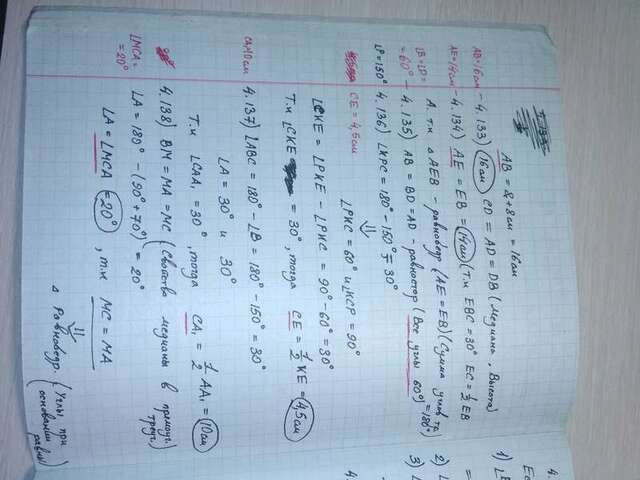 AB=16см - 4.133) 16см CD = AD = DB (Медиана, Высота)
AB = 8+8см = 16см
AE=14см - 4.134) AE = EB = 14см (т.к EBC = 30° EC = ½ EB
А. т.к △ AEB - равнобедр (AE = EB) (Сумма углов
∠B=∠D=
=60° - 4.135) AB = BD = AD - равностор (Все углы 60°) = 180°
∠P=150° 4.136) ∠KPC = 180° - 150° = 30°
⇓
∠PKC = 60° и ∠KCP = 90°
CE = 4,5см
∠CKE = ∠PKE - ∠PKC = 90° - 60° = 30°
Т.к ∠CKE = 30°, тогда CE = ½ KE = 4,5см
4.137) ∠ABC = 180° - ∠B = 180° - 150° = 30°
∠A = 30° и 30°
Т.к ∠CAA₁ = 30°, тогда CA₁ = ½ AA₁ = 10см
4.138) BM = MA = MC (Свойство медианы в прямоуг.
треуг.)
∠MCA=
=20°
∠A = 180° - (90° + 70°) = 20°
∠A = ∠MCA = 20°, т.к MC = MA
⇓
△ Равнобедр. (Углы при
основании равны)
4.
1) ∠
2) ∠
3) ∠
4.